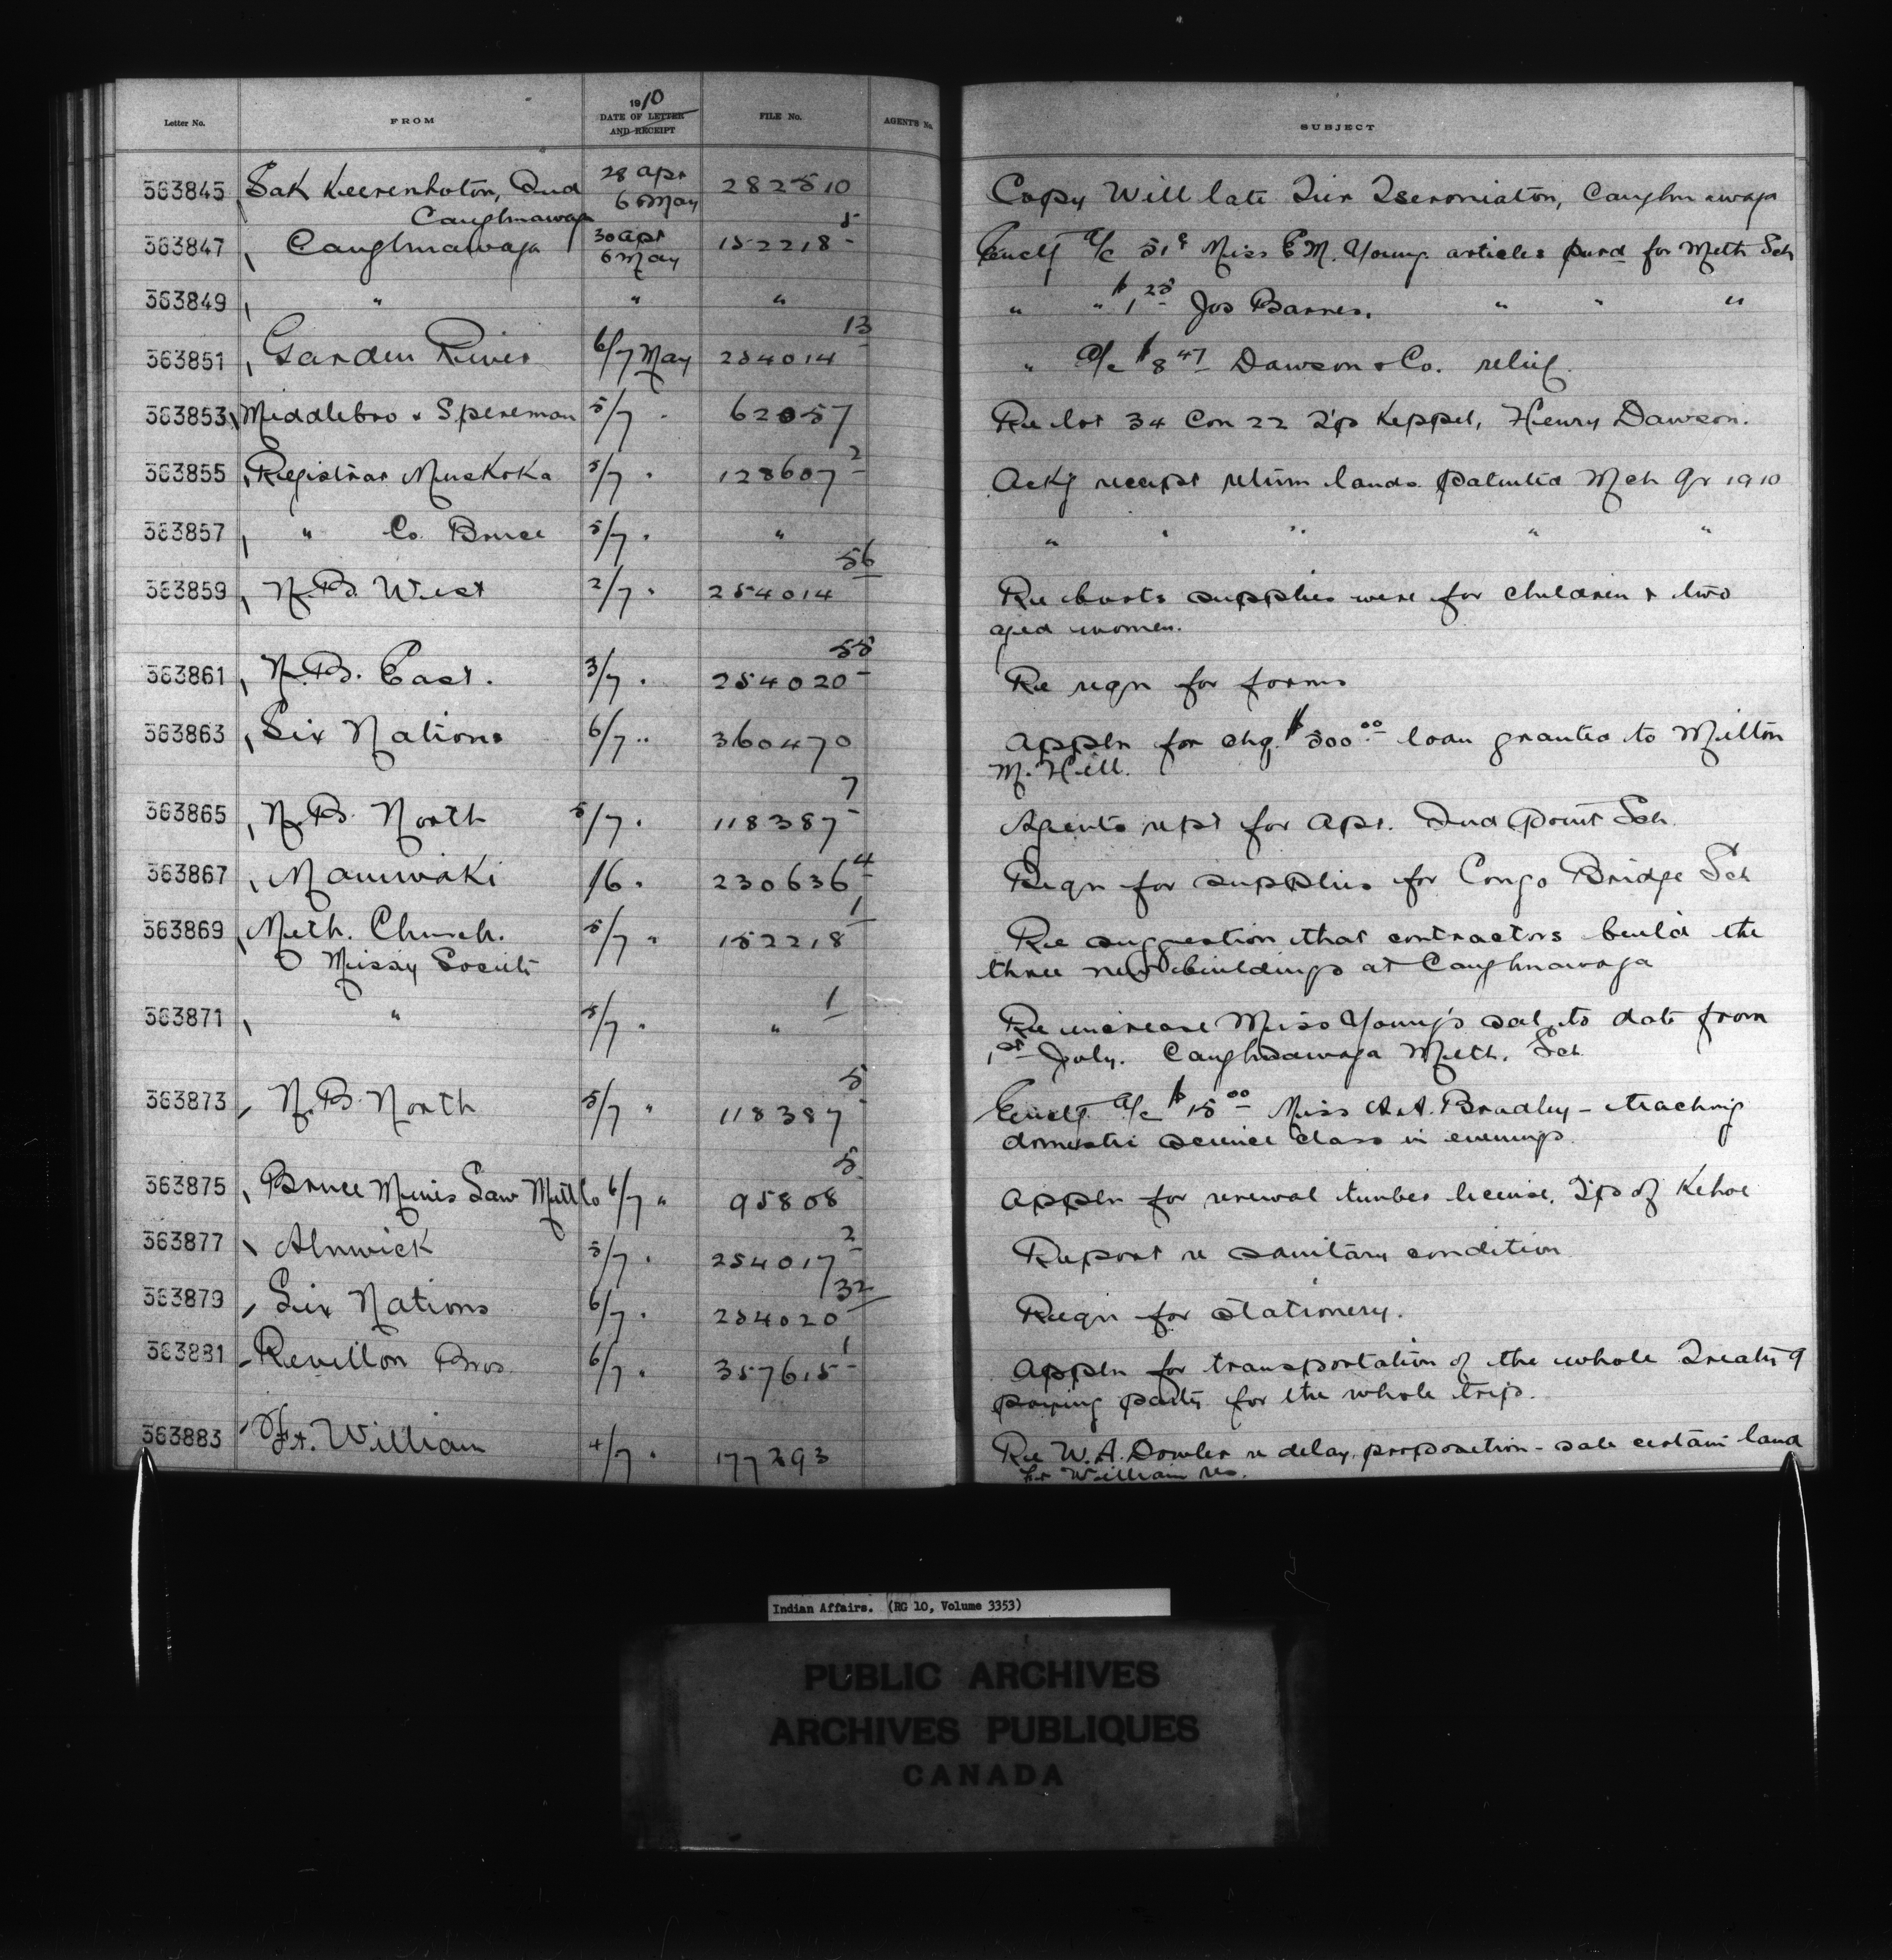 Letter No. FROM 1910 DATE OF LETTER AND RECEIPT FILE No. AGENT'S No. SUBJECT
363845 Sak Keerenhoton, Ind 28 Apr 282510 Copy Will late Tier Tseroniaton, Caughnawaga
Caughnawaga 6 May
363847 Caughnawaga 30 Apr 6 May 152218 5 Encl'g a/c 51¢ Miss E M. Young articles purd for Meth Sch
363849 " " " " " $1 25 Jos Barnes. " " "
363851 Garden River 6/7 May 254014 13 " a/c $8 47 Dawson & Co. relief.
363853 Middlebro & Spereman 5/7 " 62057 Re lot 34 Con 22 T'p Keppel, Henry Dawson.
363855 Registrar Muskoka 5/7 " 128607 2 Ack'g receipt return lands patented Mch Qr 1910
363857 " Co. Bruce 5/7 " " " " " " "
363859 N.B. West 2/7 " 254014 56 Re boots supplies were for children & two
aged women.
363861 N.B. East. 3/7 " 254020 55 Re reqn for forms
363863 Six Nations 6/7 " 360470 Appln for chq. $500 00 loan granted to Milton
M. Hill.
363865 N.B. North 5/7 " 118387 7 Agents rept for Apr. Ind Point Sch.
363867 Maniwaki /6 " 230636 4 Reqn for supplies for Congo Bridge Sch
363869 Meth. Church. 5/7 " 152218 1 Re suggestion that contractors build the
Missy Society three new buildings at Caughnawaga
363871 " 5/7 " " 1 Re increase Miss Young's sal. to date from
1st July. Caughnawaga Meth. Sch
363873 N.B. North 5/7 " 118387 5 Encl'g a/c $15 00 Miss A.A. Bradley - teaching
domestic science class in evenings
363875 Bruce Mines Saw Mill Co 6/7 " 95808 5 Appln for renewal timber license, T'p of Kehoe
363877 Alnwick 5/7 " 254017 2 Report re sanitary condition
363879 Six Nations 6/7 " 254020 32 Reqn for stationery.
363881 Revillon Bros. 6/7 " 357615 1 Appln for transportation of the whole Treaty 9
paying party for the whole trip.
363883 Ft. William 4/7 " 177293 Re W.A. Dowler re delay, proposition - sale certain land
Ft William res.
Indian Affairs. (RG 10, Volume 3353)
PUBLIC ARCHIVES
ARCHIVES PUBLIQUES
CANADA